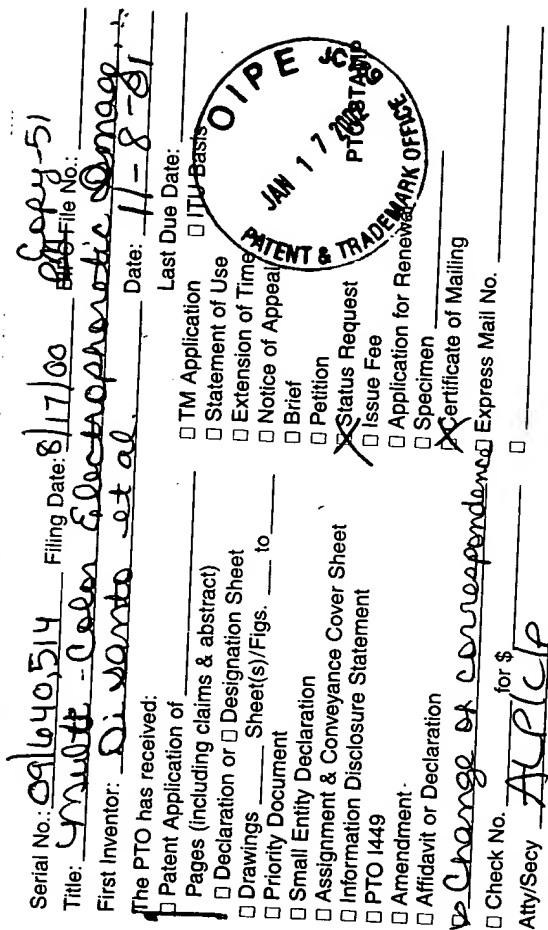 Serial No.: 09/640,514 Filing Date: 8/17/00 File No.: Copy-51
Title: Multi-Color Electrophoretic Image...
First Inventor: Disanto et al. Date: 11-8-01
The PTO has received: Last Due Date:
☐ Patent Application of
Pages (including claims & abstract)
☐ Declaration or ☐ Designation Sheet
☐ Drawings ____ Sheet(s)/Figs. ____ to ____
☐ Priority Document
☐ Small Entity Declaration
☐ Assignment & Conveyance Cover Sheet
☐ Information Disclosure Statement
☐ PTO 1449
☐ Amendment
☐ Affidavit or Declaration
Change of correspondence
☐ Check No. ____ for $ ____
Atty/Secy ALP/clp
☐ TM Application
☐ ITU Basis
☐ Statement of Use
☐ Extension of Time
☐ Notice of Appeal
☐ Brief
☐ Petition
☒ Status Request
☐ Issue Fee
☐ Application for Renewal
☐ Specimen
☒ Certificate of Mailing
☐ Express Mail No.
☐
OIPE
JAN 17
PTO STAMP
PATENT & TRADEMARK OFFICE